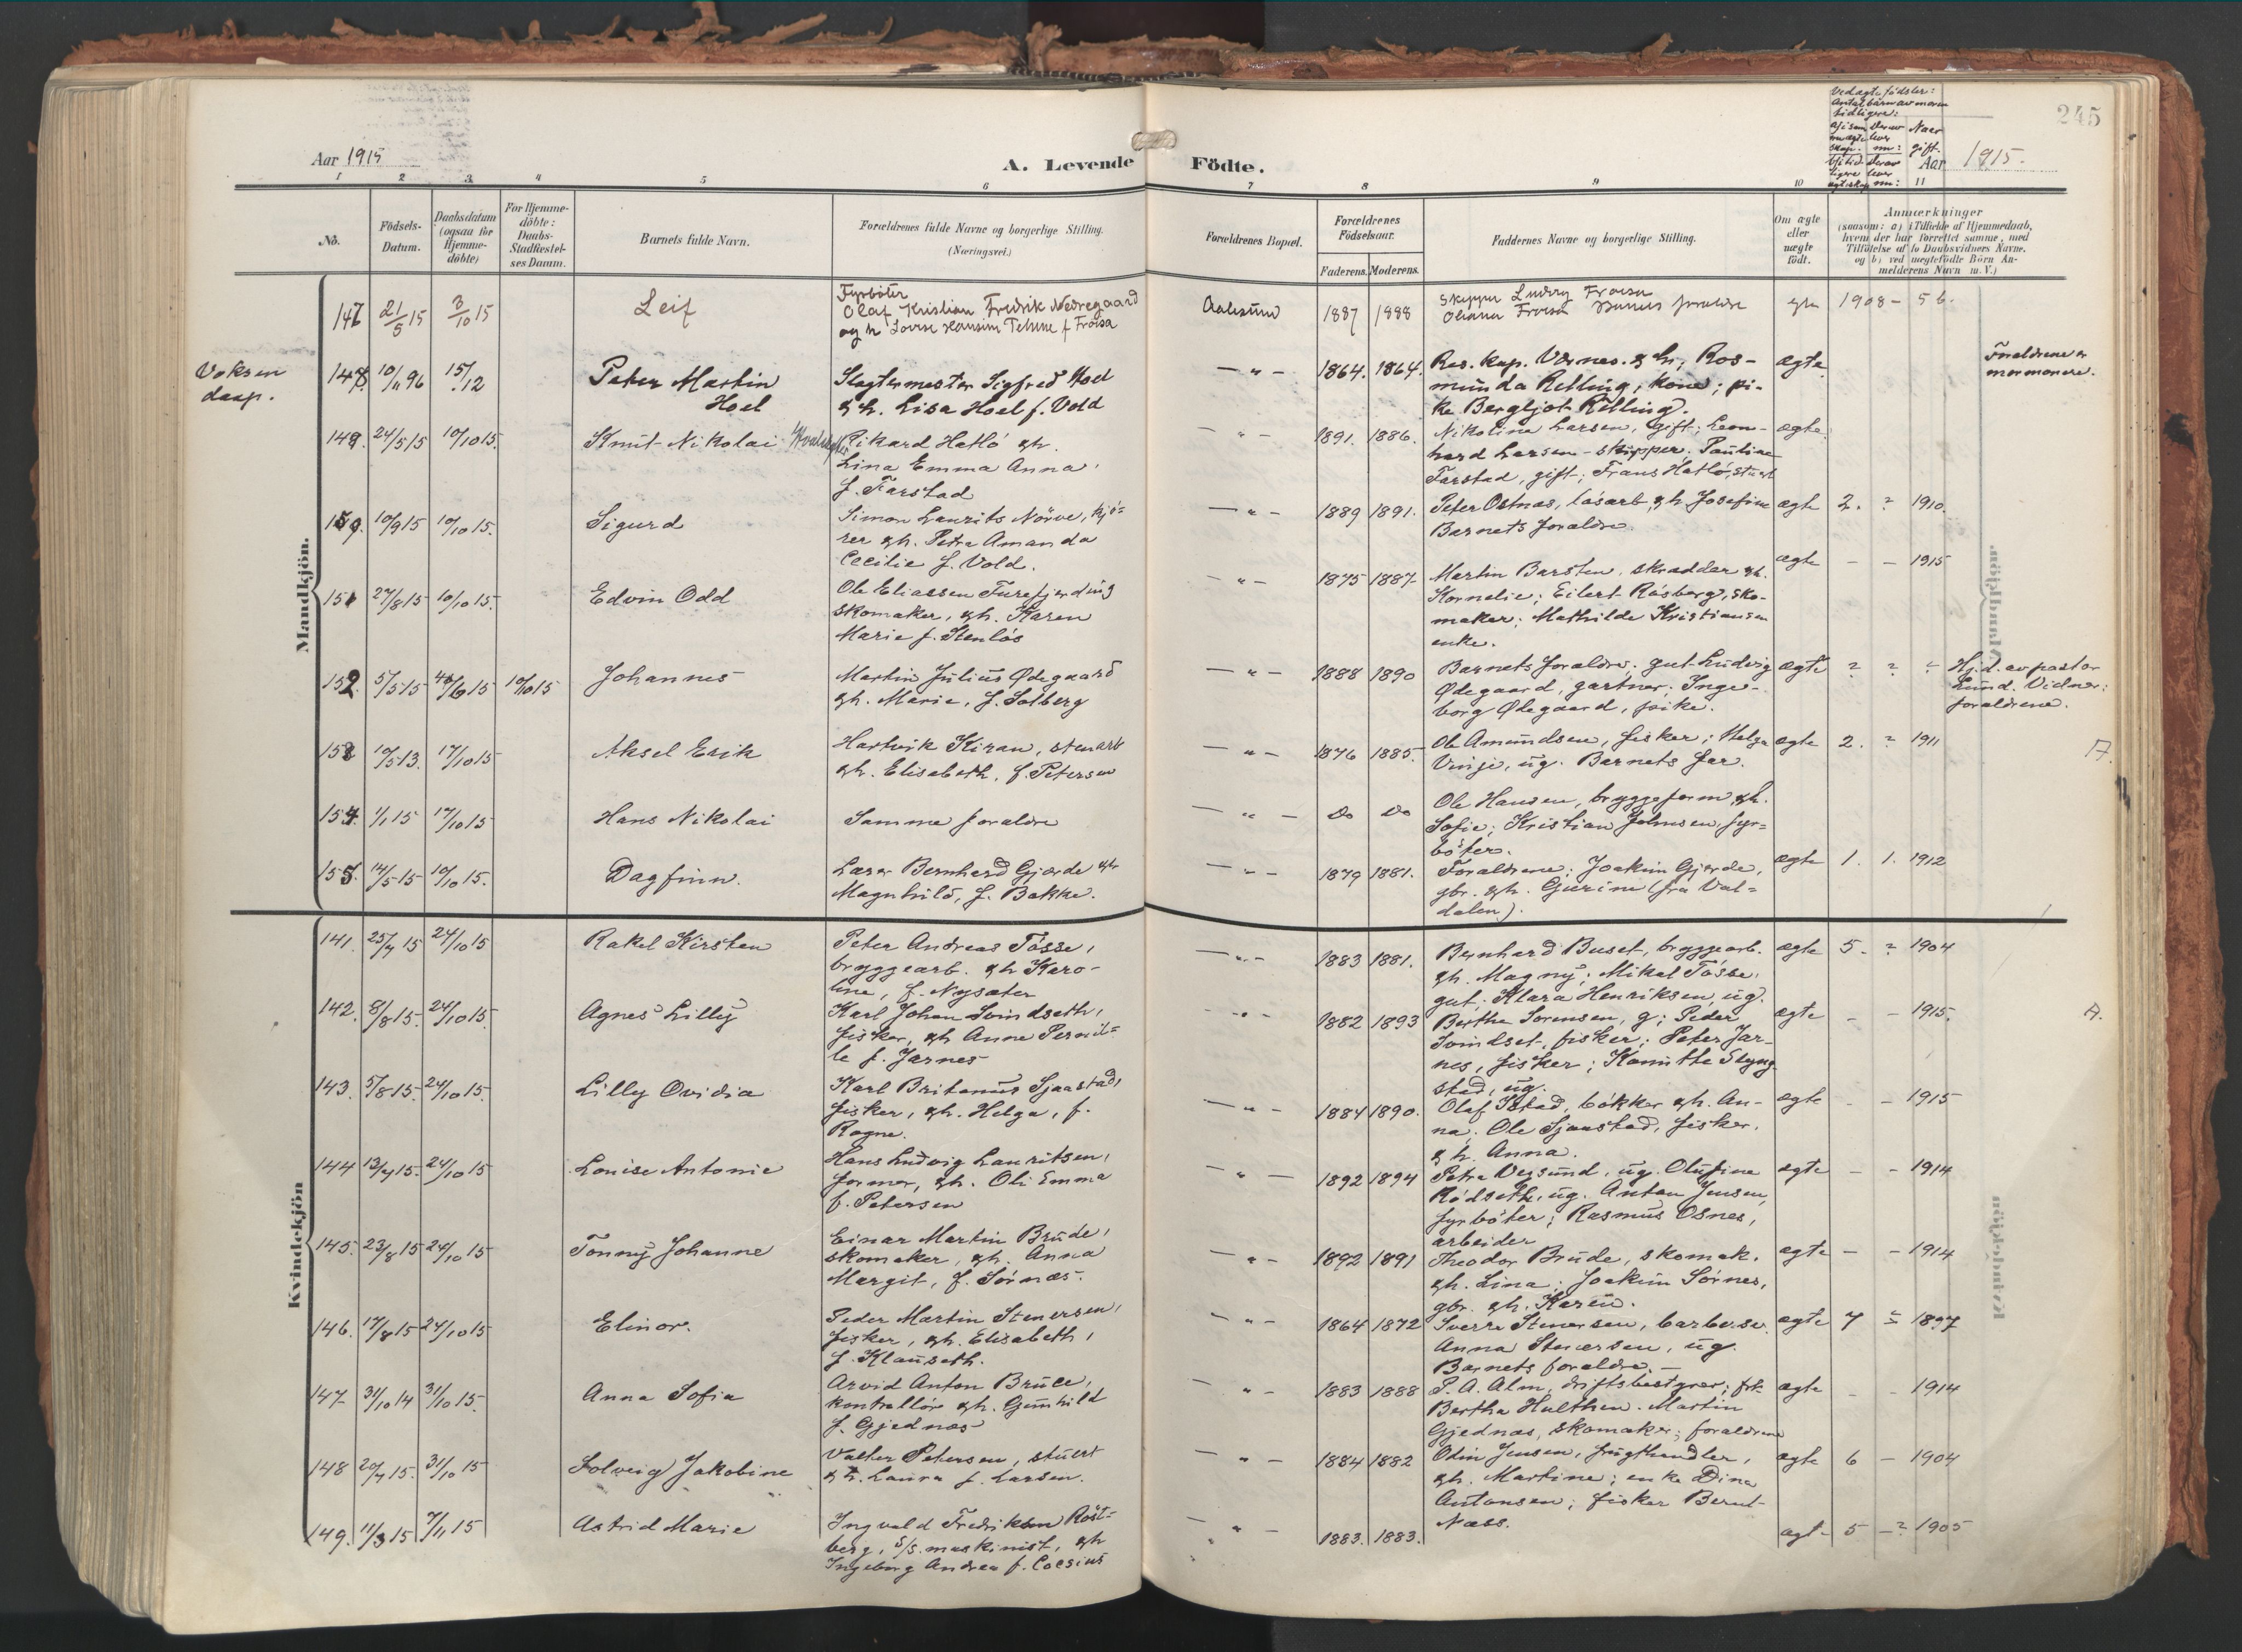 245
Aar 1915
A. Levende Födte.
Ved ægte födsler:
Antal barn av moren
tidligere:
Naar gift.
Aar 1915.
1 2 3 4 5 6 7 8 9 10 11
No.
Födsels-Datum.
Daabsdatum (ogsaa for Hjemme-döbte)
For Hjemme-döbte: Daabs-Stadfæstel-ses Datum.
Barnets fulde Navn.
Forældrenes fulde Navne og borgerlige Stilling.
(Næringsvei.)
Forældrenes Bopæl.
Forældrenes Födselsaar.
Faderens. Moderens.
Faddernes Navne og borgerlige Stilling.
Om ægte eller uægte födt.
Anmærkninger
(saasom: a) i Tilfælde af Hjemmedaab,
hvem der har forrettet samme, med
Tilföielse af to Daabsvidners Navne.
og b) ved uægtefödte Börn An-
melderens Navn m. V.)
Mandkjön.
147 21/5 15 3/10 15 Leif
Fyrböter
Olaf Kristian Fredrik Nedregaard
og h Lovise Hansine Telnne f Froisa
Aalesund 1887 1888
Skipper Ludvig Froisa
Oliana Froisa Barnets foraldre
gte 1908 – 5 b.
Voksen
daap.
148 10/11 96 15/12 Peter Martin
Hoel
Slagtermester Sigfred Hoel
& h. Lisa Hoel f. Vold
— " — 1864. 1864.
Res. kap. Værnes. & h., Ros-
munda Relling, kone; pi-
ke Bergljot Relling.
ægte
Foreldrene er
mormonere.
149. 24/5 15 10/10 15. Knut Nikolai
Rikard Hatlö & h.
Lina Emma Anna,
f. Farstad
— " — 1891. 1886.
Nikoline Larsen, gift; Leon-
hard Larsen – skipper; Pauline
Farstad, gift; Frans Hatlö, stuert
ægte.
150. 10/9 15 10/10 15. Sigurd
Simon Laurits Nörve, kjö-
rer & h. Petra Amanda
Cecilie f. Vold.
— " — 1889 1891.
Peter Ostnas, lösarb. & h. Josefine
Barnets foraldre
ægte 2. ? 1910.
151 27/8 15 10/10 15. Edvin Odd
Ole Eliassen Furefjerding
skomaker, & h. Karen
Marie f. Stenlös
— " — 1875 1887
Martin Barsten, skrædder & h.
Kornelie; Eilert Råsberg, sko-
maker; Mathilde Kristiansen
enke.
ægte – – 1915
152. 5/5 15 /6 15 10/10 15 Johannes
Martin Julius Ødegaard
& h. Marie, f. Solberg
— " — 1888 1890
Barnets foraldre; gut Ludvig
Ødegaard, gartner; Inge-
borg Ødegaard, pike.
ægte ? ? ÷
Hj.d. av pastor
Lund. Vidner:
foraldrene.
153 10/5 13. 17/10 15 Aksel Erik
Hartvik Kiran, stenarb
& h. Elisabeth, f. Petersen
— " — 1876 1885.
Ole Amundsen, fisker; Helga
Vinje, ug. Barnets far.
ægte 2. ? 1911
A.
154. 1/1 15 17/10 15 Hans Nikolai
Samme foraldre
— " — Do Do
Ole Hansen, bryggeform. & h.
Sofie; Kristian Johnsen, fyr-
böter.
155. 14/5 15 10/10 15. Dagfinn.
Lærer Bernhard Gjærde & h
Magnhild, f. Bakke.
— " — 1879 1881.
Foraldrene; Joakim Gjerde,
gbr. & h. Gurine (fra Val-
dalen).
ægte 1. 1. 1912
Kvindekjön
141. 25/7 15 24/10 15 Rakel Kirsten
Peter Andreas Tösse,
bryggearb. & h Karo-
line, f. Nysæter
— " — 1883 1881.
Bernhard Buset, bryggearb.
& h. Magny; Mikal Tösse,
gut. Klara Henriksen, ug.
ægte 5. ? 1904
142. 8/8 15. 24/10 15. Agnes Lilly
Karl Johan Svindseth,
fisker, & h Anne Pernil-
le f. Jarnes
— " — 1882 1893
Berthe Sörensen, g; Peder
Svindset, fisker; Peter Jar-
nes, fisker;
stad, ug.
ægte – – 1915.
A.
143. 5/8 15. 24/10 15. Lilly Ovidia
Karl Britanus Sjaastad,
fisker, & h. Helga, f.
Rogne.
— " — 1884 1890.
Olaf Istad, bökker & h. An-
na; Ole Sjaastad, fisker,
& h. Anna.
ægte – – 1915
144 13/7 15. 24/10 15 Louise Antonie
Hans Ludvig Lauritsen,
former, & h. Oli Emma
f. Petersen
— " — 1892 1894
Petra Vegsund, ug. Olufine
Rödseth, ug. Anton Jensen,
fyrböter; Rasmus Osnes,
arbeider
ægte – – 1914
145. 23/8 15 24/10 15 Tonny Johanne
Einar Martin Brude,
skomaker, & h. Anna
Margit, f. Sörnæs.
— " — 1892 1891
Theodor Brude, skomak.
& h. Lina; Joakim Sörnes,
gbr. & h. Karen.
ægte – – 1914
146. 17/8 15 24/10 15 Elinor.
Peder Martin Stenersen,
fisker, & h. Elisabeth,
f. Klauseth.
— " — 1864 1872
Sverre Stenersen, barber sv.
Anna Stenersen, ug.
Barnets foraldre. —
ægte 7 1897
147 31/10 14 31/10 15. Anna Sofia
Arvid Anton Bruce,
kontrollör & h. Gunhild
f. Gjednæs
— " — 1883 1888
P. A. Alm, driftsbestyrer; frk.
Bertha Hulthen. Martin
Gjednæs, skomaker; foraldrene
ægte – – 1914
148 20/7 15. 31/10 15 Solveig Jakobine
Valter Petersen, stuert
& h. Laura f. Larsen.
— " — 1884 1882
Odin Jensen, frugthandler,
& h. Martine; enke Dina
Antonsen; fisker Bernt
Næss.
ægte 6 – 1904
149. 11/3 15 7/11 15 Astrid Marie
Ingvald Fredriksen Röst-
berg, s/s. maskinist, & h
Ingeborg Andrea f. Coesius
— " — 1883. 1883.
ægt– 5 –? 1905